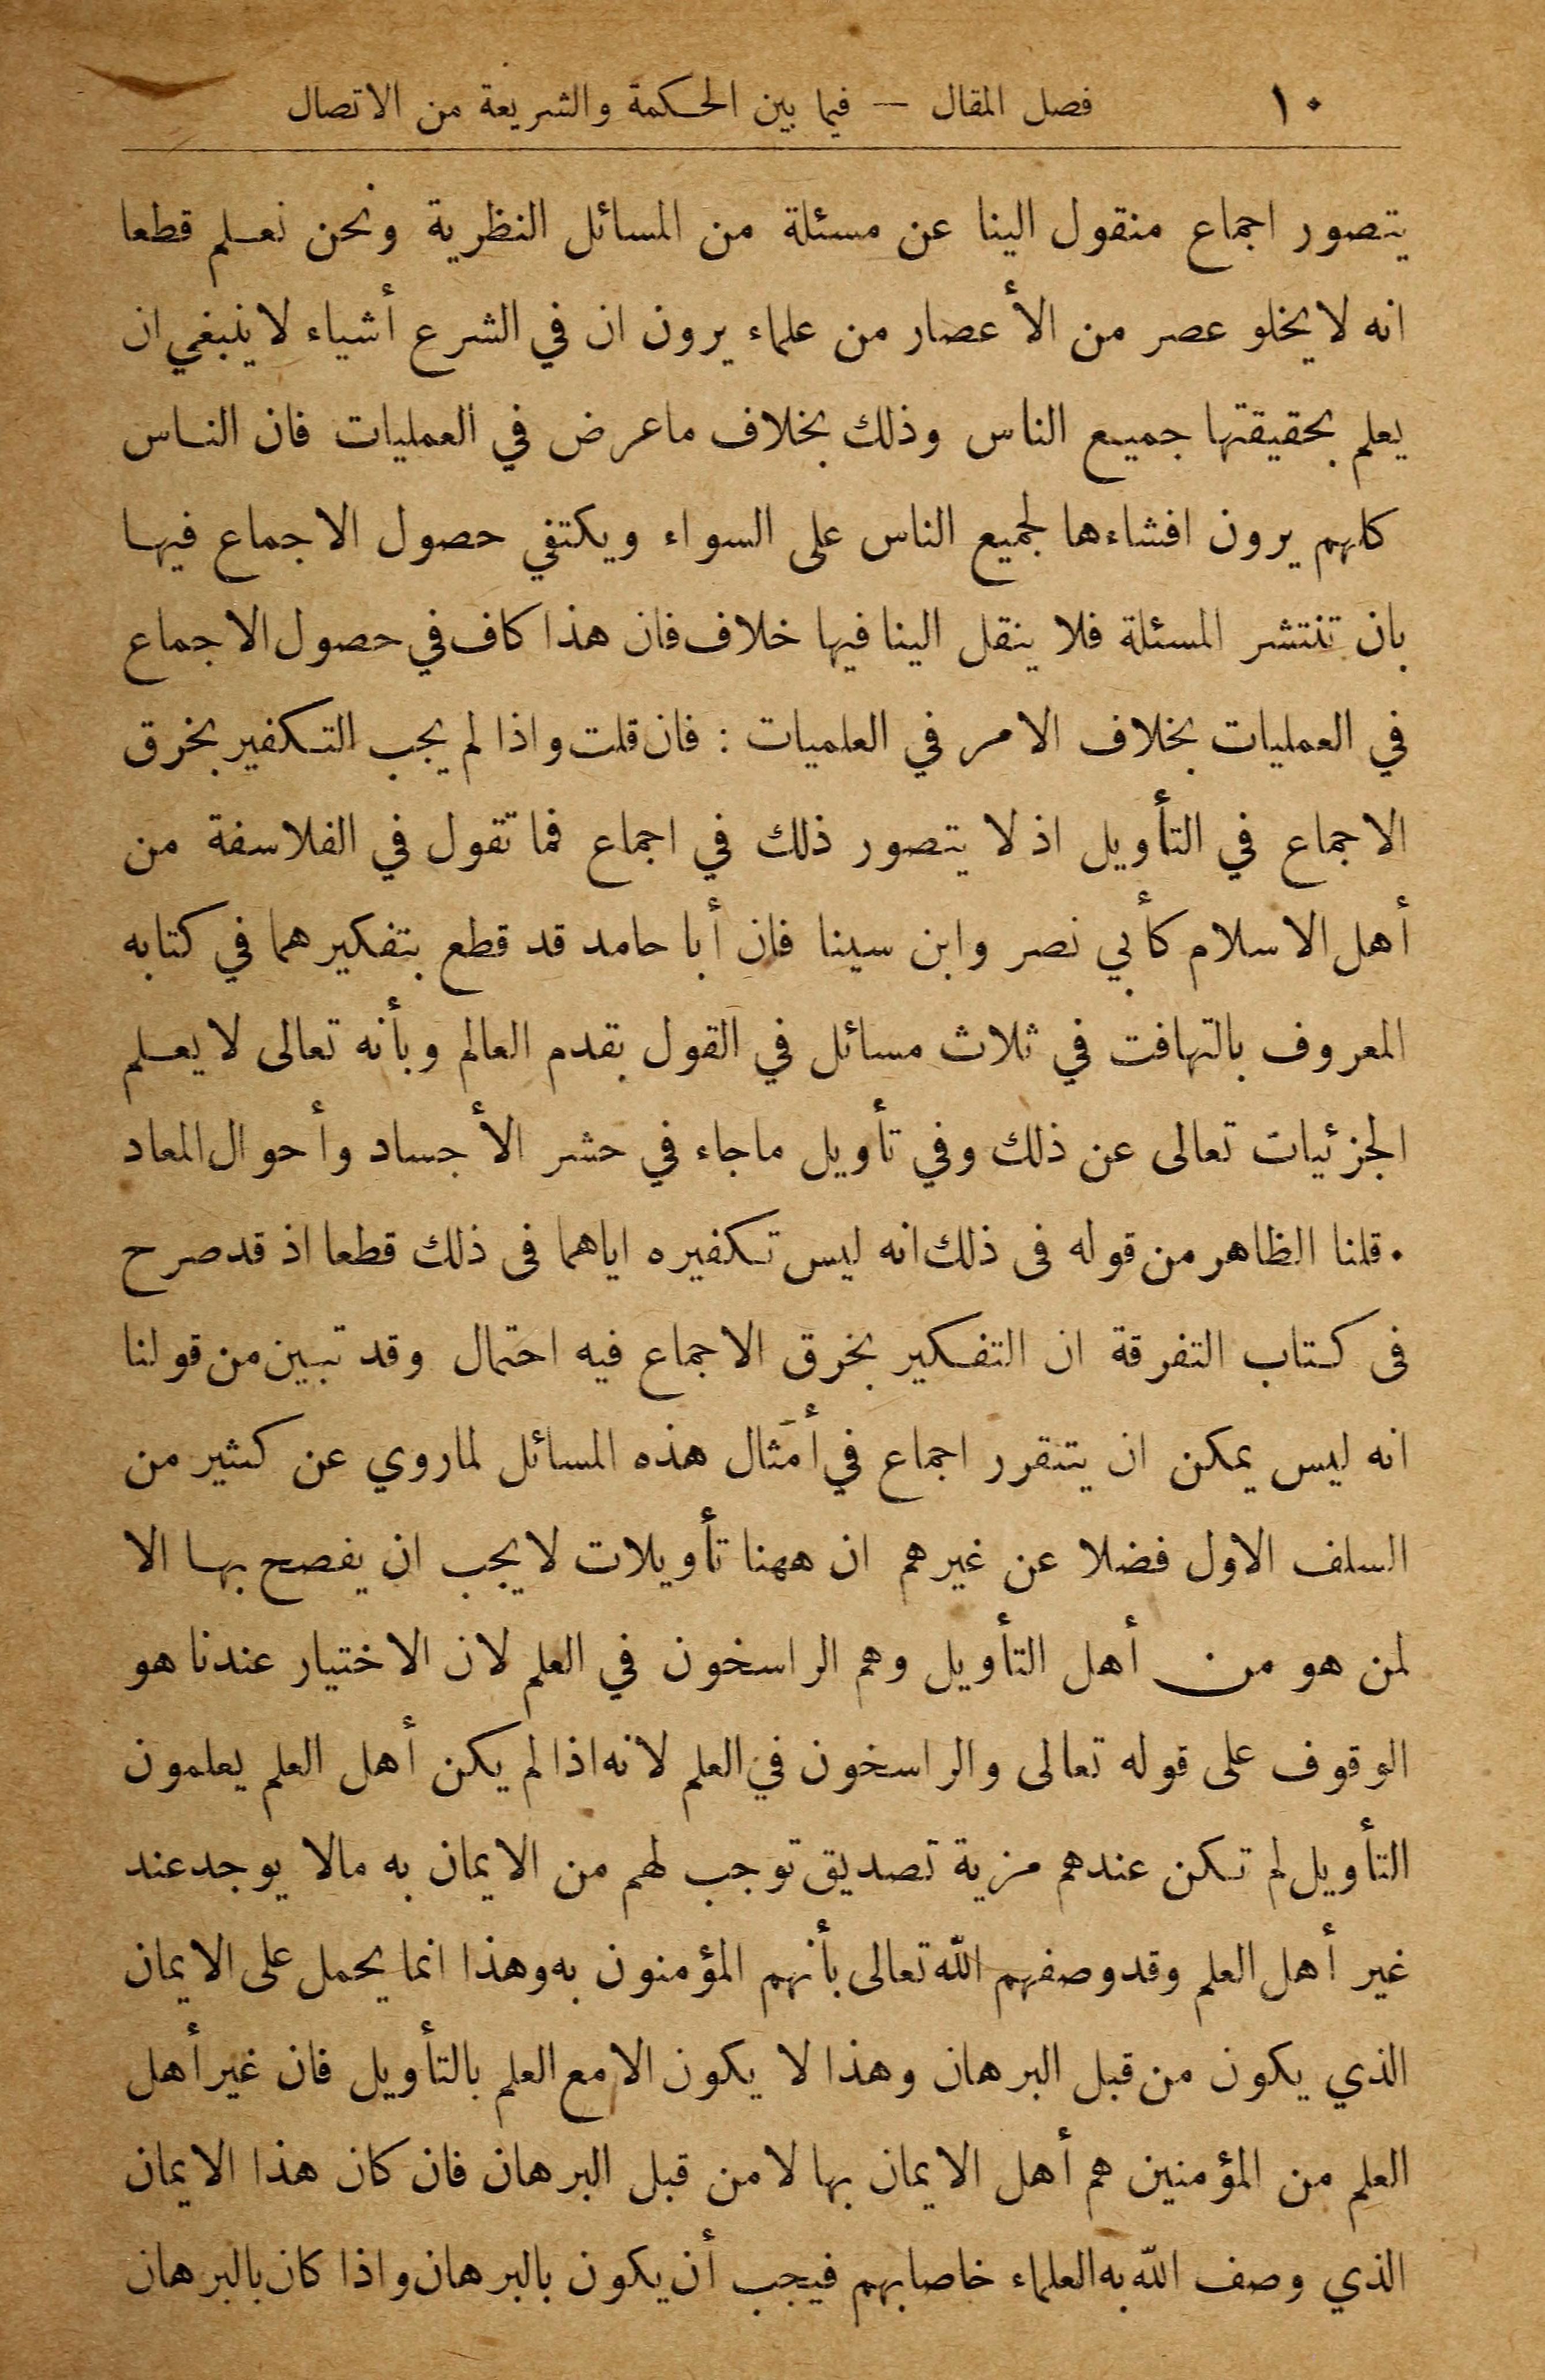 ١٠ فصل المقال — فيما بين الحكمة والشريعة من الاتصال
يتصور اجماع منقول الينا عن مسئلة من المسائل النظرية ونحن نعلم قطعا
انه لا يخلو عصر من الأعصار من علماء يرون ان في الشرع أشياء لا ينبغي ان
يعلم بحقيقتها جميع الناس وذلك بخلاف ماعرض في العمليات فان الناس
كلهم يرون افشاءها لجميع الناس على السواء ويكتفي حصول الاجماع فيها
بان تنتشر المسئلة فلا ينقل الينا فيها خلاف فان هذا كاف في حصول الاجماع
في العمليات بخلاف الامر في العلميات : فان قلت واذا لم يجب التكفير بخرق
الاجماع في التأويل اذ لا يتصور ذلك في اجماع فما تقول في الفلاسفة من
أهل الاسلام كأبي نصر وابن سينا فان أبا حامد قد قطع بتفكيرهما في كتابه
المعروف بالتهافت في ثلاث مسائل في القول بقدم العالم وبأنه تعالى لا يعلم
الجزئيات تعالى عن ذلك وفي تأويل ماجاء في حشر الأجساد وأحوال المعاد
. قلنا الظاهر من قوله فى ذلك انه ليس تكفيره اياهما فى ذلك قطعا اذ قد صرح
فى كتاب التفرقة ان التفكير بخرق الاجماع فيه احتمال وقد تبين من قولنا
انه ليس يمكن ان يتقرر اجماع في أمثال هذه المسائل لماروي عن كثير من
السلف الاول فضلا عن غيرهم ان ههنا تأويلات لا يجب ان يفصح بها الا
لمن هو من أهل التأويل وهم الراسخون في العلم لان الاختيار عندنا هو
الوقوف على قوله تعالى والراسخون في العلم لانه اذا لم يكن أهل العلم يعلمون
التأويل لم تكن عندهم مزية تصديق توجب لهم من الايمان به مالا يوجد عند
غير أهل العلم وقد وصفهم الله تعالى بأنهم المؤمنون به وهذا انما يحمل على الايمان
الذي يكون من قبل البرهان وهذا لا يكون الا مع العلم بالتأويل فان غير أهل
العلم من المؤمنين هم أهل الايمان بها لا من قبل البرهان فان كان هذا الايمان
الذي وصف الله به العلماء خاصا بهم فيجب أن يكون بالبرهان واذا كان بالبرهان